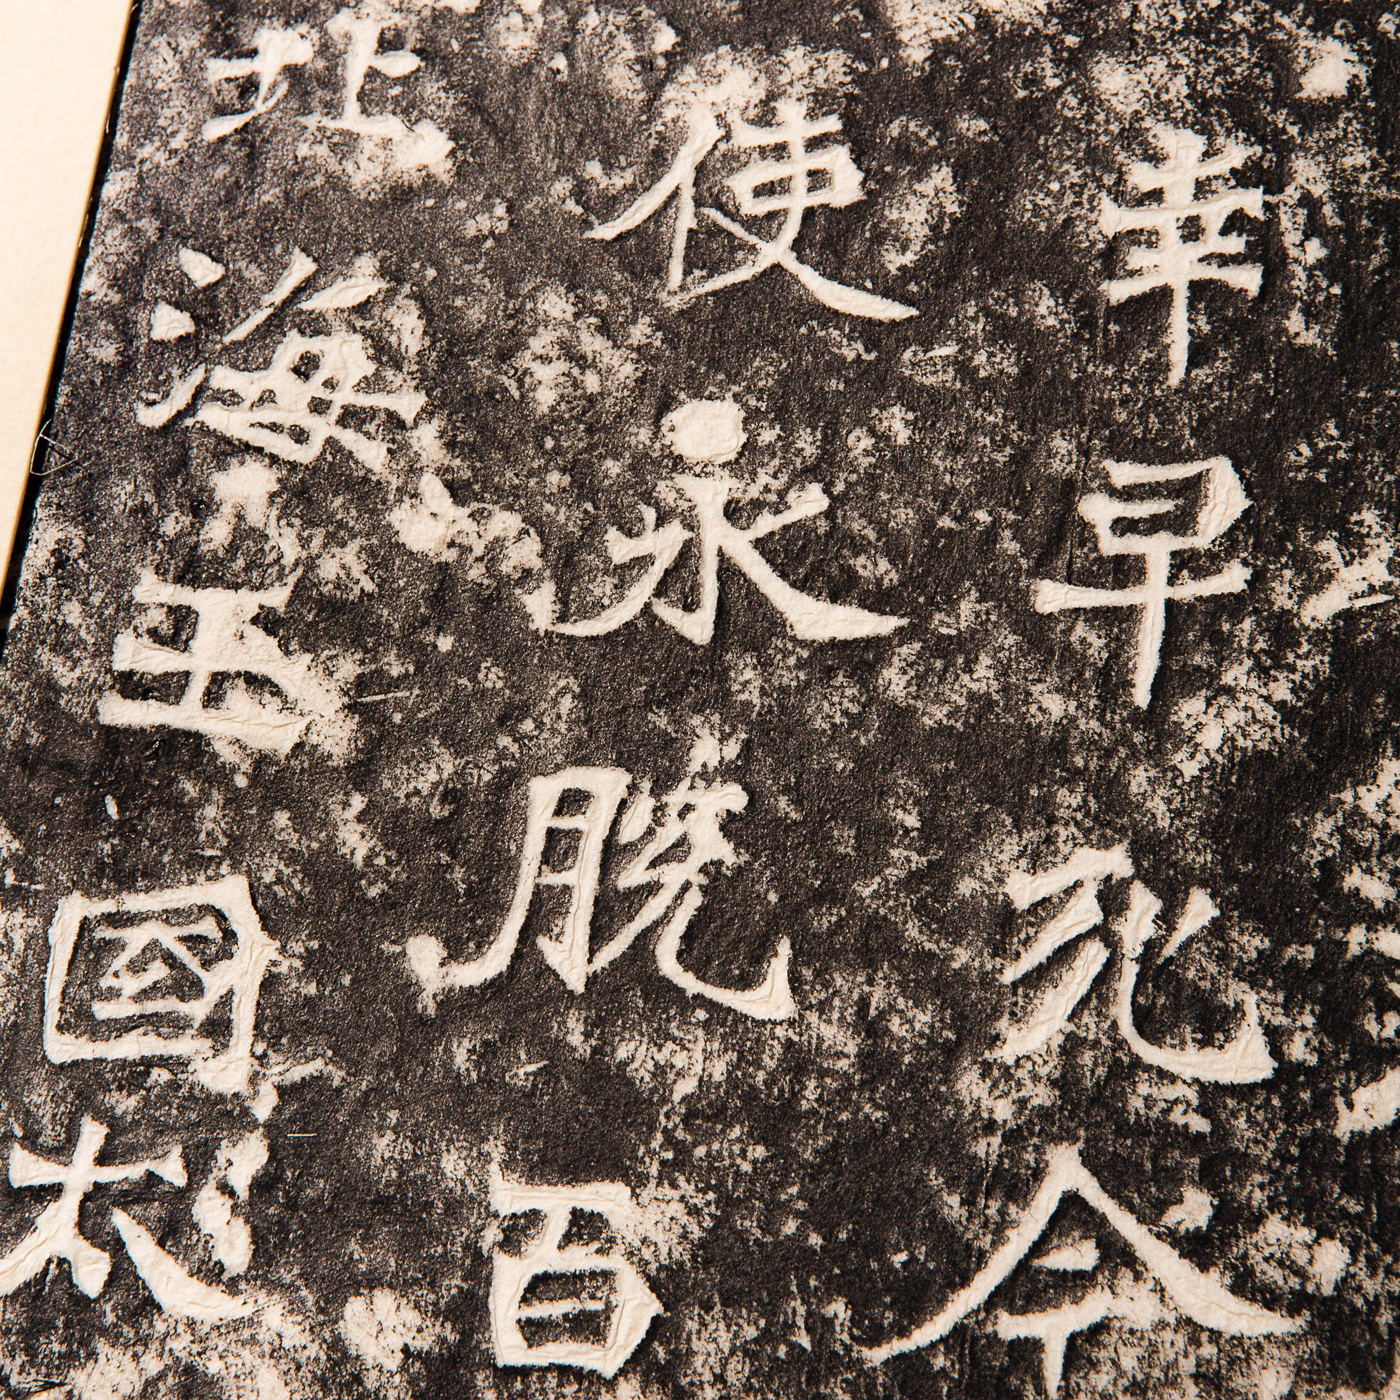 幸早死今
使永脫百
北海王國太